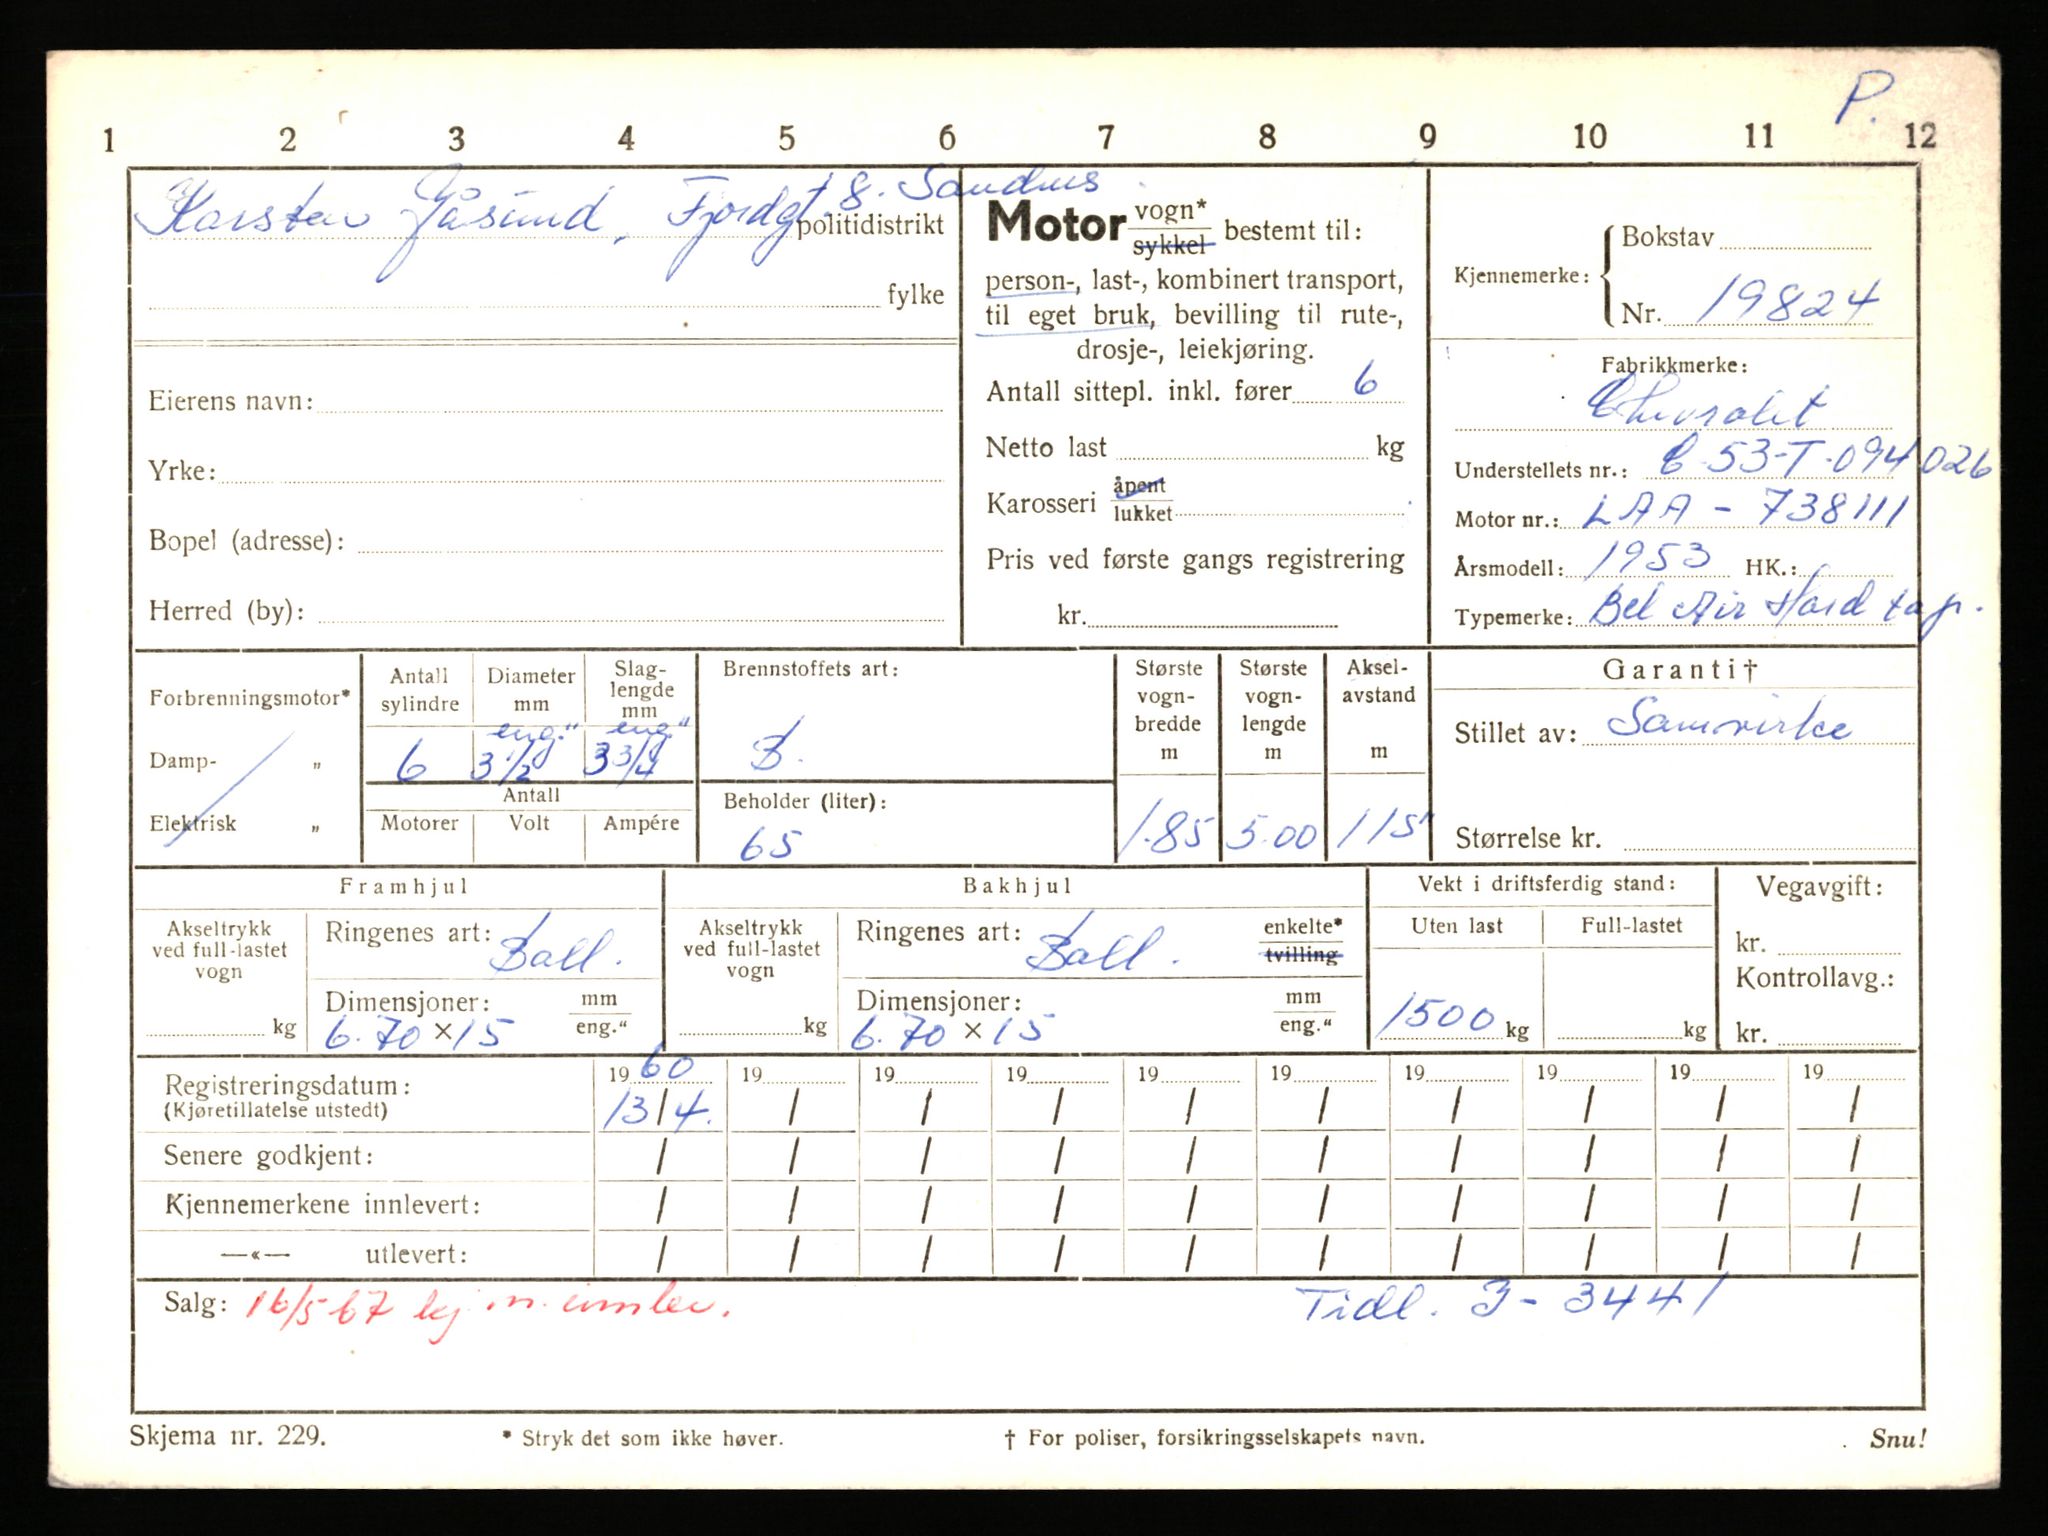 P.
1 2 3 4 5 6 7 8 9 10 11 12
Karsten Gåsund, Fjordgt. 8. Sandnes
politidistrikt
fylke
Eierens navn:
Yrke:
Bopel (adresse):
Herred (by):
Motor vogn* sykkel bestemt til:
person-, last-, kombinert transport,
til eget bruk, bevilling til rute-,
drosje-, leiekjøring.
Antall sittepl. inkl. fører 6
Netto last kg
Karosseri åpent lukket
Pris ved første gangs registrering
kr.
Kjennemerke: Bokstav
Nr. 19824
Fabrikkmerke:
Chevrolet
Understellets nr.: C-53-T-094026
Motor nr.: LAA - 738111
Årsmodell: 1953 HK.:
Typemerke: Bel Air Hard top.
Forbrenningsmotor*
Damp- „
Elektrisk „
Antall sylindre
6
Diameter mm
eng."
3 1/2
Slag-lengde mm
eng."
3 3/4
Antall
Motorer Volt Ampére
Brennstoffets art:
B.
Beholder (liter):
65
Største vogn-bredde m
1.85
Største vogn-lengde m
5.00
Aksel-avstand m
115"
Garanti†
Stillet av: Samvirke
Størrelse kr.
Framhjul
Akseltrykk ved full-lastet vogn
kg
Ringenes art: Ball.
Dimensjoner: mm eng.“
6.70 × 15
Bakhjul
Akseltrykk ved full-lastet vogn
kg
Ringenes art: Ball. enkelte* tvilling
Dimensjoner: mm eng.“
6.70 × 15
Vekt i driftsferdig stand:
Uten last Full-lastet
1500 kg kg
Vegavgift:
kr.
Kontrollavg.:
kr.
Registreringsdatum: 1960 19 19 19 19 19 19 19 19 19
(Kjøretillatelse utstedt) 13/4. / / / / / / / / /
Senere godkjent: / / / / / / / / / /
Kjennemerkene innlevert: / / / / / / / / / /
—«— utlevert: / / / / / / / / / /
Salg: 16/5-67 kj.m. innlev. Tidl. J - 3441
Skjema nr. 229. * Stryk det som ikke høver. † For poliser, forsikringsselskapets navn. Snu!